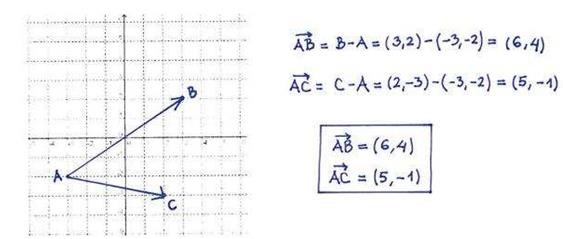 B
A
C
AB = B-A = (3,2)-(-3,-2) = (6,4)
AC = C-A = (2,-3)-(-3,-2) = (5,-1)
AB = (6,4)
AC = (5,-1)